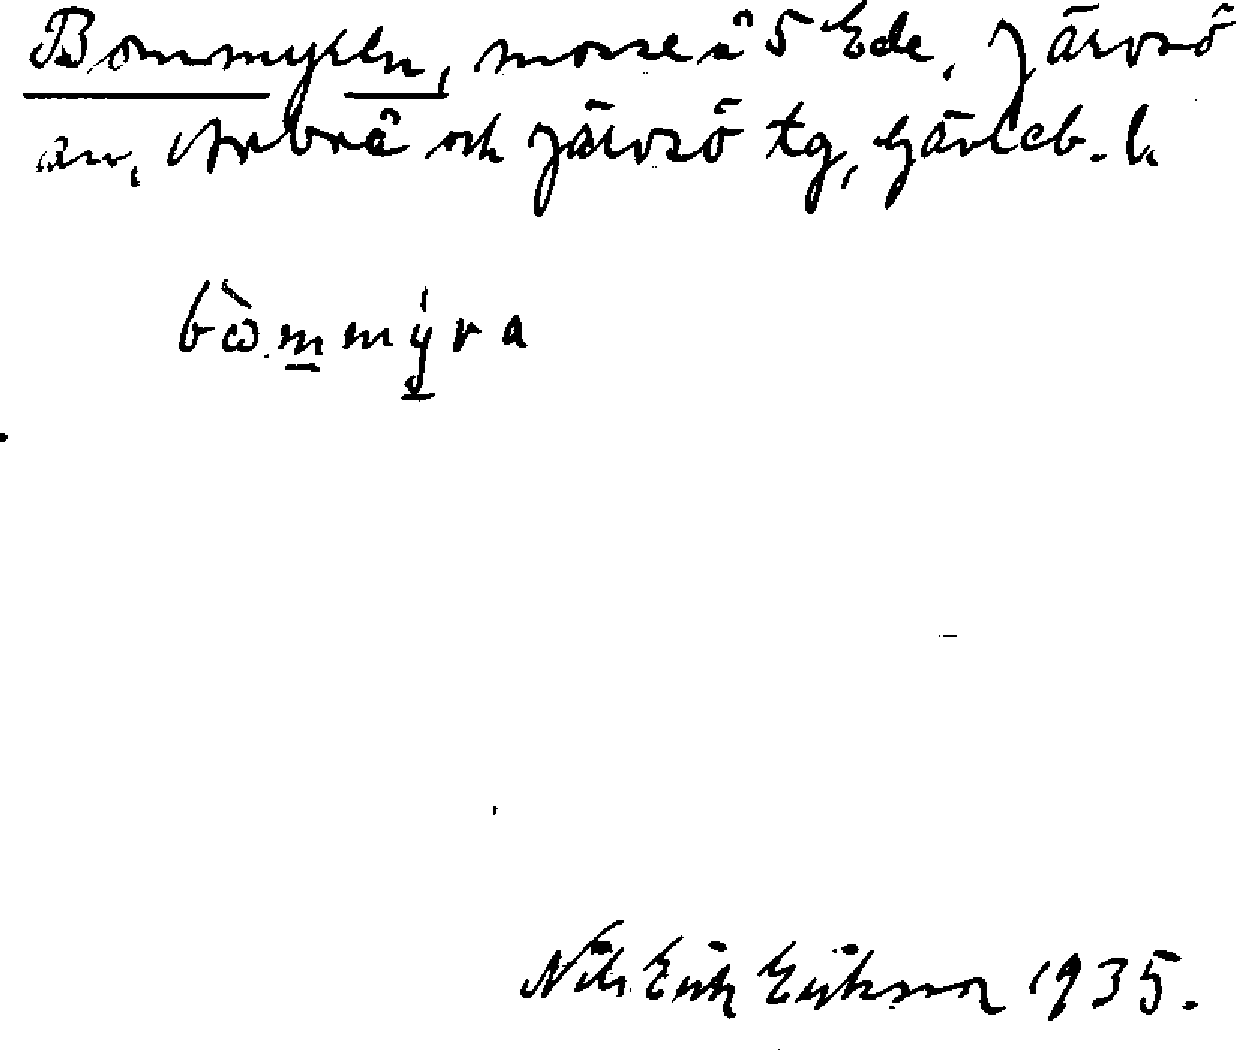 Bommyren, mosse å 5 Ede, Järvsö
sn, Arbrå och Järvsö tg, Gävleb. l.
bòmmýra
Nils Erik Eriksson 1935.